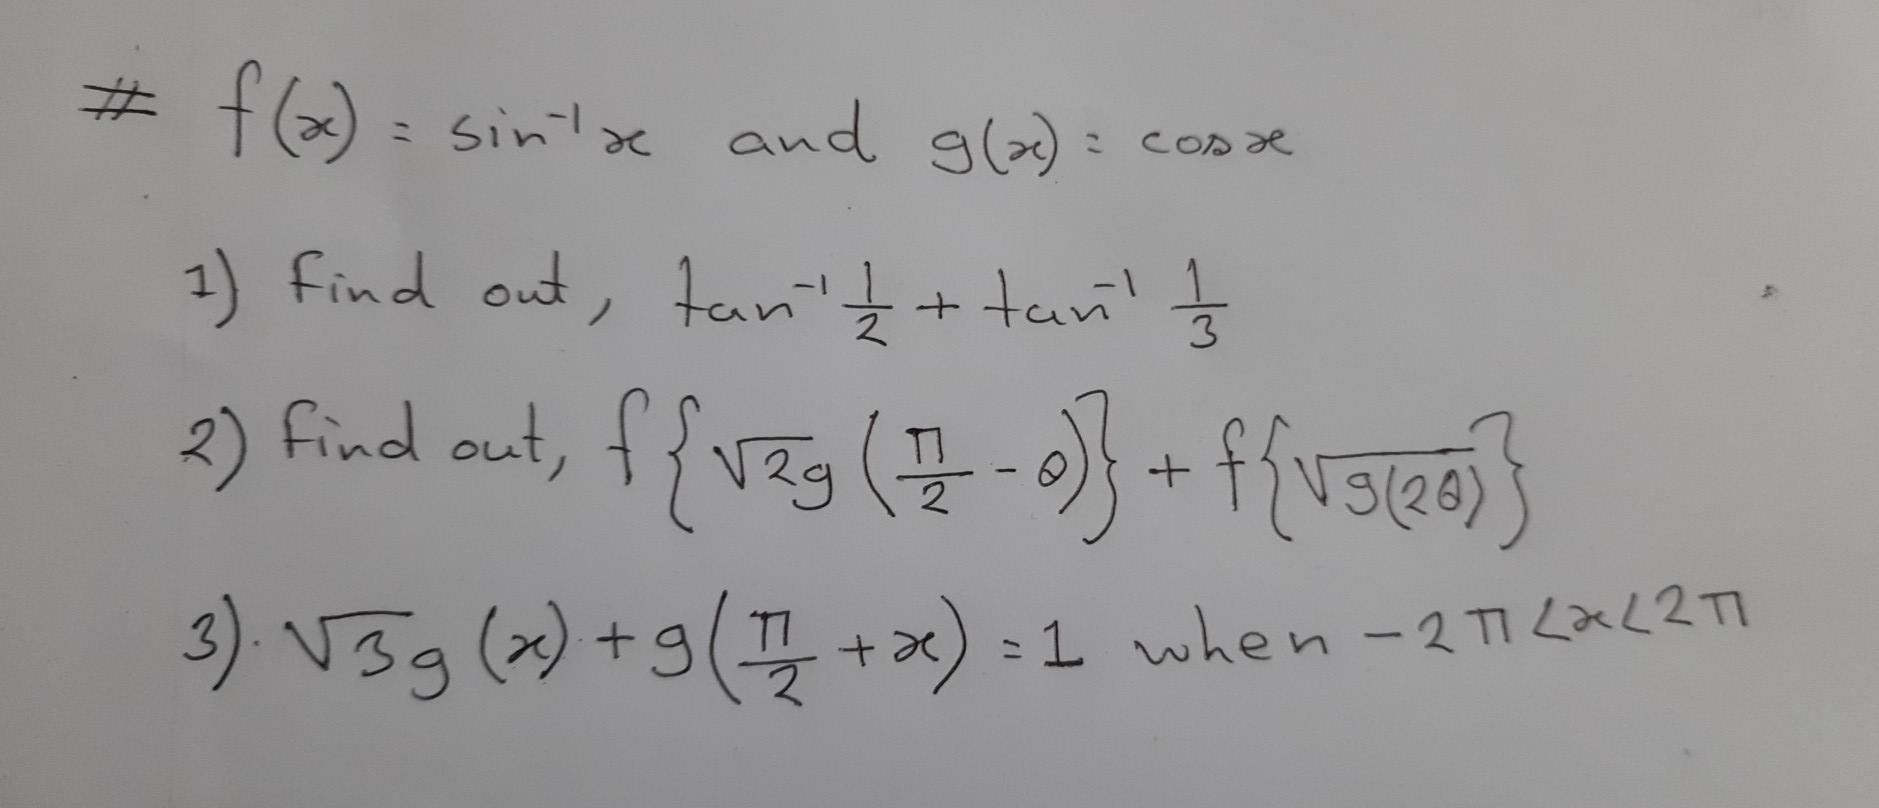 # f(x) = sin⁻¹x and g(x) = cosx
1) Find out, tan⁻¹ 1/2 + tan⁻¹ 1/3
2) Find out, f{√2g(π/2 - θ)} + f{√g(2θ)}
3). √3g(x) + g(π/2 + x) = 1 when -2π<x<2π